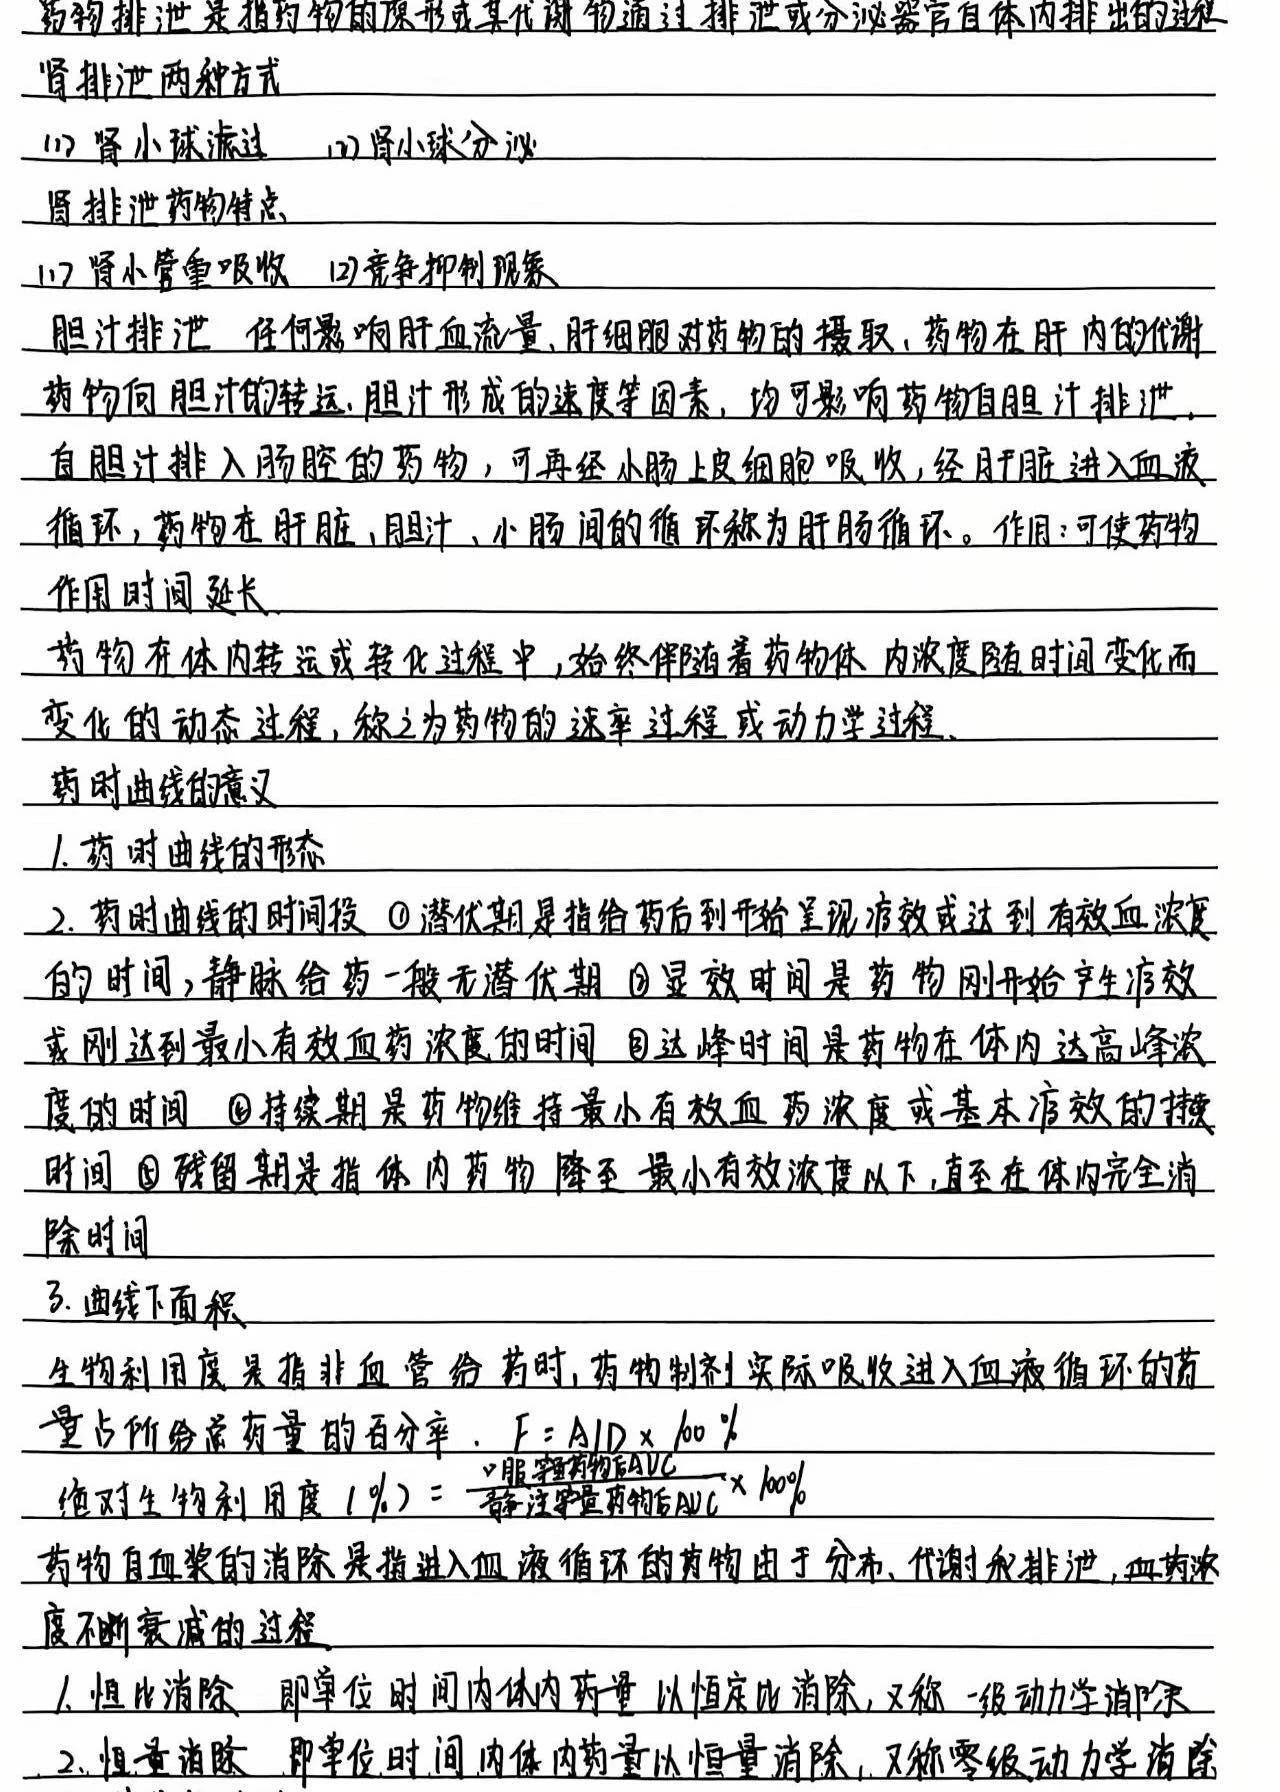 药物排泄是指药物的原形或其代谢物通过排泄或分泌器官自体内排出的过程
肾排泄两种方式
(1) 肾小球滤过 (2) 肾小球分泌
肾排泄药物特点
(1) 肾小管重吸收 (2) 竞争抑制现象
胆汁排泄 任何影响肝血流量、肝细胞对药物的摄取、药物在肝内的代谢
药物向胆汁的转运、胆汁形成的速度等因素，均可影响药物自胆汁排泄.
自胆汁排入肠腔的药物，可再经小肠上皮细胞吸收，经肝脏进入血液
循环，药物在肝脏、胆汁、小肠间的循环称为肝肠循环。作用：可使药物
作用时间延长.
药物在体内转运或转化过程中，始终伴随着药物体内浓度随时间变化而
变化的动态过程，称之为药物的速率过程或动力学过程.
药时曲线的意义
1. 药时曲线的形态
2. 药时曲线的时间段 ①潜伏期是指给药后到开始呈现疗效或达到有效血浓度
的时间，静脉给药一般无潜伏期 ②显效时间是药物刚开始产生疗效
或刚达到最小有效血药浓度的时间 ③达峰时间是药物在体内达高峰浓
度的时间 ④持续期是药物维持最小有效血药浓度或基本疗效的持续
时间 ⑤残留期是指体内药物降至最小有效浓度以下，直至在体内完全消
除时间
3. 曲线下面积
生物利用度是指非血管给药时，药物制剂实际吸收进入血液循环的药
量占所给总药量的百分率. F=A/D×100%
绝对生物利用度(%)= 口服等量药物后AUC / 静注等量药物后AUC ×100%
药物自血浆的消除是指进入血液循环的药物由于分布、代谢和排泄，血药浓
度不断衰减的过程
1. 恒比消除 即单位时间内体内药量以恒定比消除，又称一级动力学消除
2. 恒量消除 即单位时间内体内药量以恒量消除，又称零级动力学消除